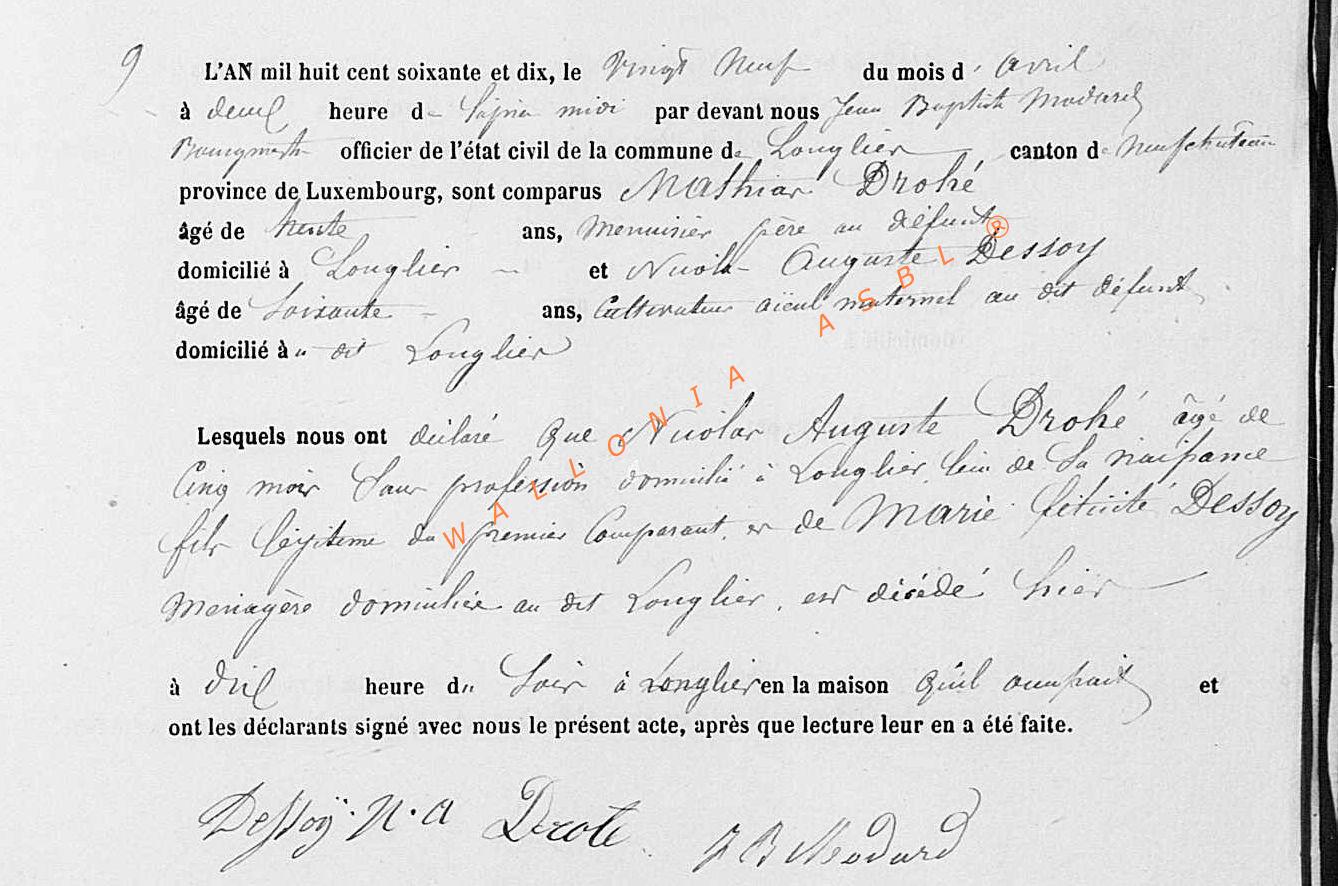 9
L'AN mil huit cent soixante et dix, le Vingt Neuf du mois d' avril
à deux heure de l'après midi par devant nous Jean Baptiste Modard
Bourgmestre officier de l'état civil de la commune de Longlier canton de Neufchateau
province de Luxembourg, sont comparus Mathias Drohé
âgé de trente ans, Menuisier père au défunt
domicilié à Longlier et Nicolas Auguste Dessoy
âgé de Soixante ans, Cultivateur aïeul maternel au dit défunt
domicilié à u dit Longlier
Lesquels nous ont déclaré que Nicolas Auguste Drohé âgé de
Cinq mois Sans profession domicilié à Longlier lieu de Sa naissance
fils légitime du premier Comparant et de Marie félicité Dessoy
Menagère domiciliée au dit Longlier, est décédé hier
à dix heure du Soir à Longlier en la maison qu'il occupait et
ont les déclarants signé avec nous le présent acte, après que lecture leur en a été faite.
Dessoÿ. N. a Drote J B Modard
WALLONIA ASBL ®